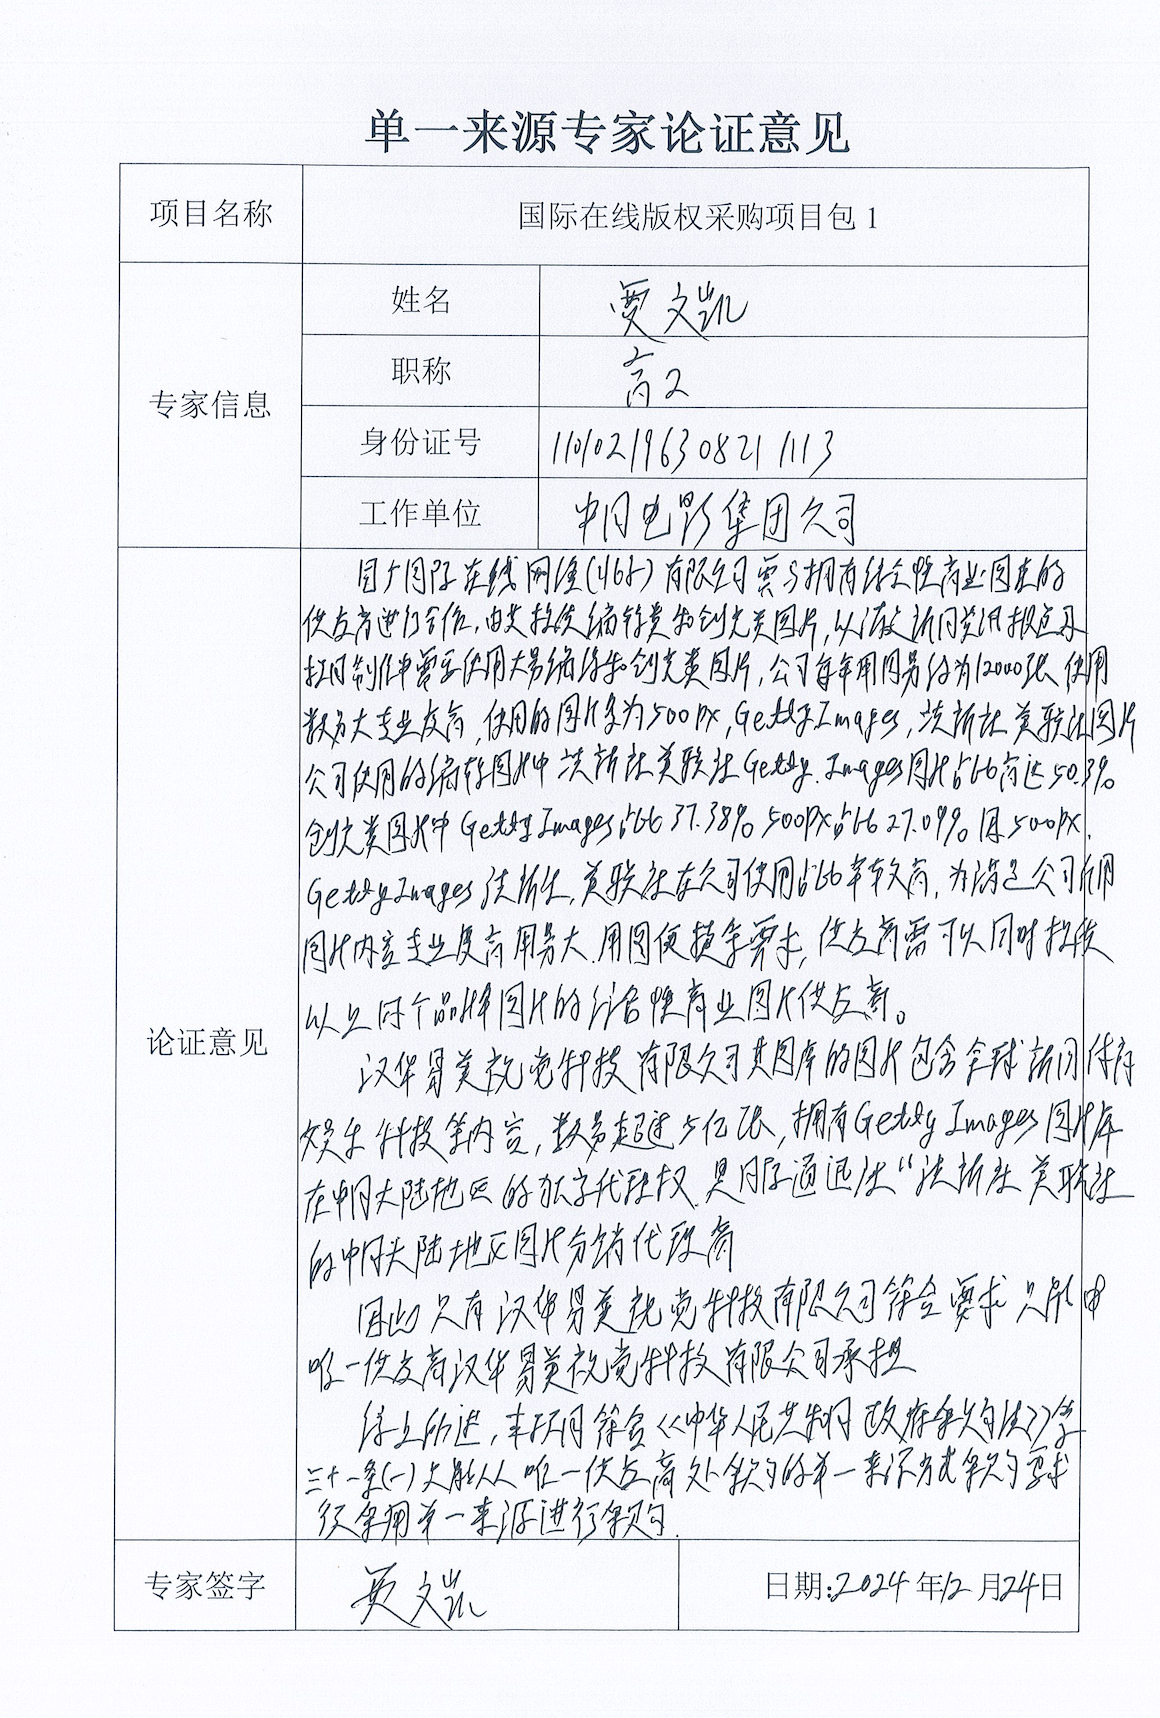 单一来源专家论证意见
项目名称
国际在线版权采购项目包1
专家信息
姓名
贾文凯
职称
高工
身份证号
110102196308211113
工作单位
中国电影集团公司
论证意见
国广国际在线网络(北京)有限公司需与拥有综合性商业图库的
供应商进行合作,由其提供编辑类和创意类图片,以满足新闻资讯报道及
栏目制作中需要使用大量编辑和创意类图片,公司每年用图量约为12000张,使用
数量大专业度高,使用的图片多为500px,Getty Images,法新社 美联社图片
公司使用的编辑图片中 法新社 美联社 Getty Images图片占比高达50.3%
创意类图片中 Getty Images占比37.38% 500px占比27.09% 因500px,
Getty Images 法新社,美联社在公司使用占比率较高,为满足公司所用
图片内容专业度高 用量大.用图便捷等要求,供应商需可以同时提供
以上同个品牌图片的综合性商业图片供应商。
汉华易美视觉科技有限公司其图库的图片包含全球新闻 体育
娱乐 科技等内容,数量超过5亿张,拥有Getty Images图片库
在中国大陆地区的独家代理权 是国际通讯社“法新社 美联社
的中国大陆地区图片分销代理商
因此只有汉华易美视觉科技有限公司符合要求 只能由
唯一供应商汉华易美视觉科技有限公司承担
综上所述,本项目符合《中华人民共和国政府采购法》第
三十一条(一)只能从唯一供应商处采购的单一来源方式采购要求
采用单一来源进行采购.
专家签字
贾文凯
日期:2024年12月24日